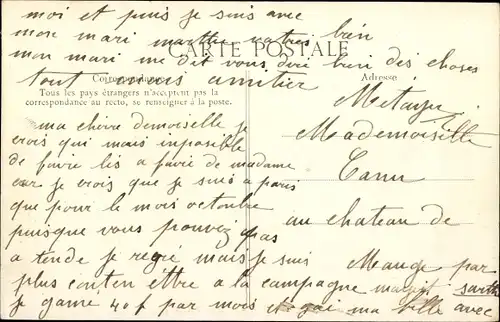 moi et puis je suis avec
mon mari marthe votres bien
mon mari me dit vous dire bien des choses
CARTE POSTALE
tout amitier
Correspondance
Adresse
Tous les pays étrangers n'acceptent pas la
correspondance au recto, se renseigner à la poste.
Mademoiselle
Canu
au chateau de
par
sarthe
ma chère demoiselle je
crois qui mais imposible
de faire lis a faire de madame
car je crois que je suis a paris
que pour le mois octoubre
puisque vous pouvez pas
a tende je regré mais je suis
plus conten être a la campagne
je gane 40 f par mois et ma fille avec